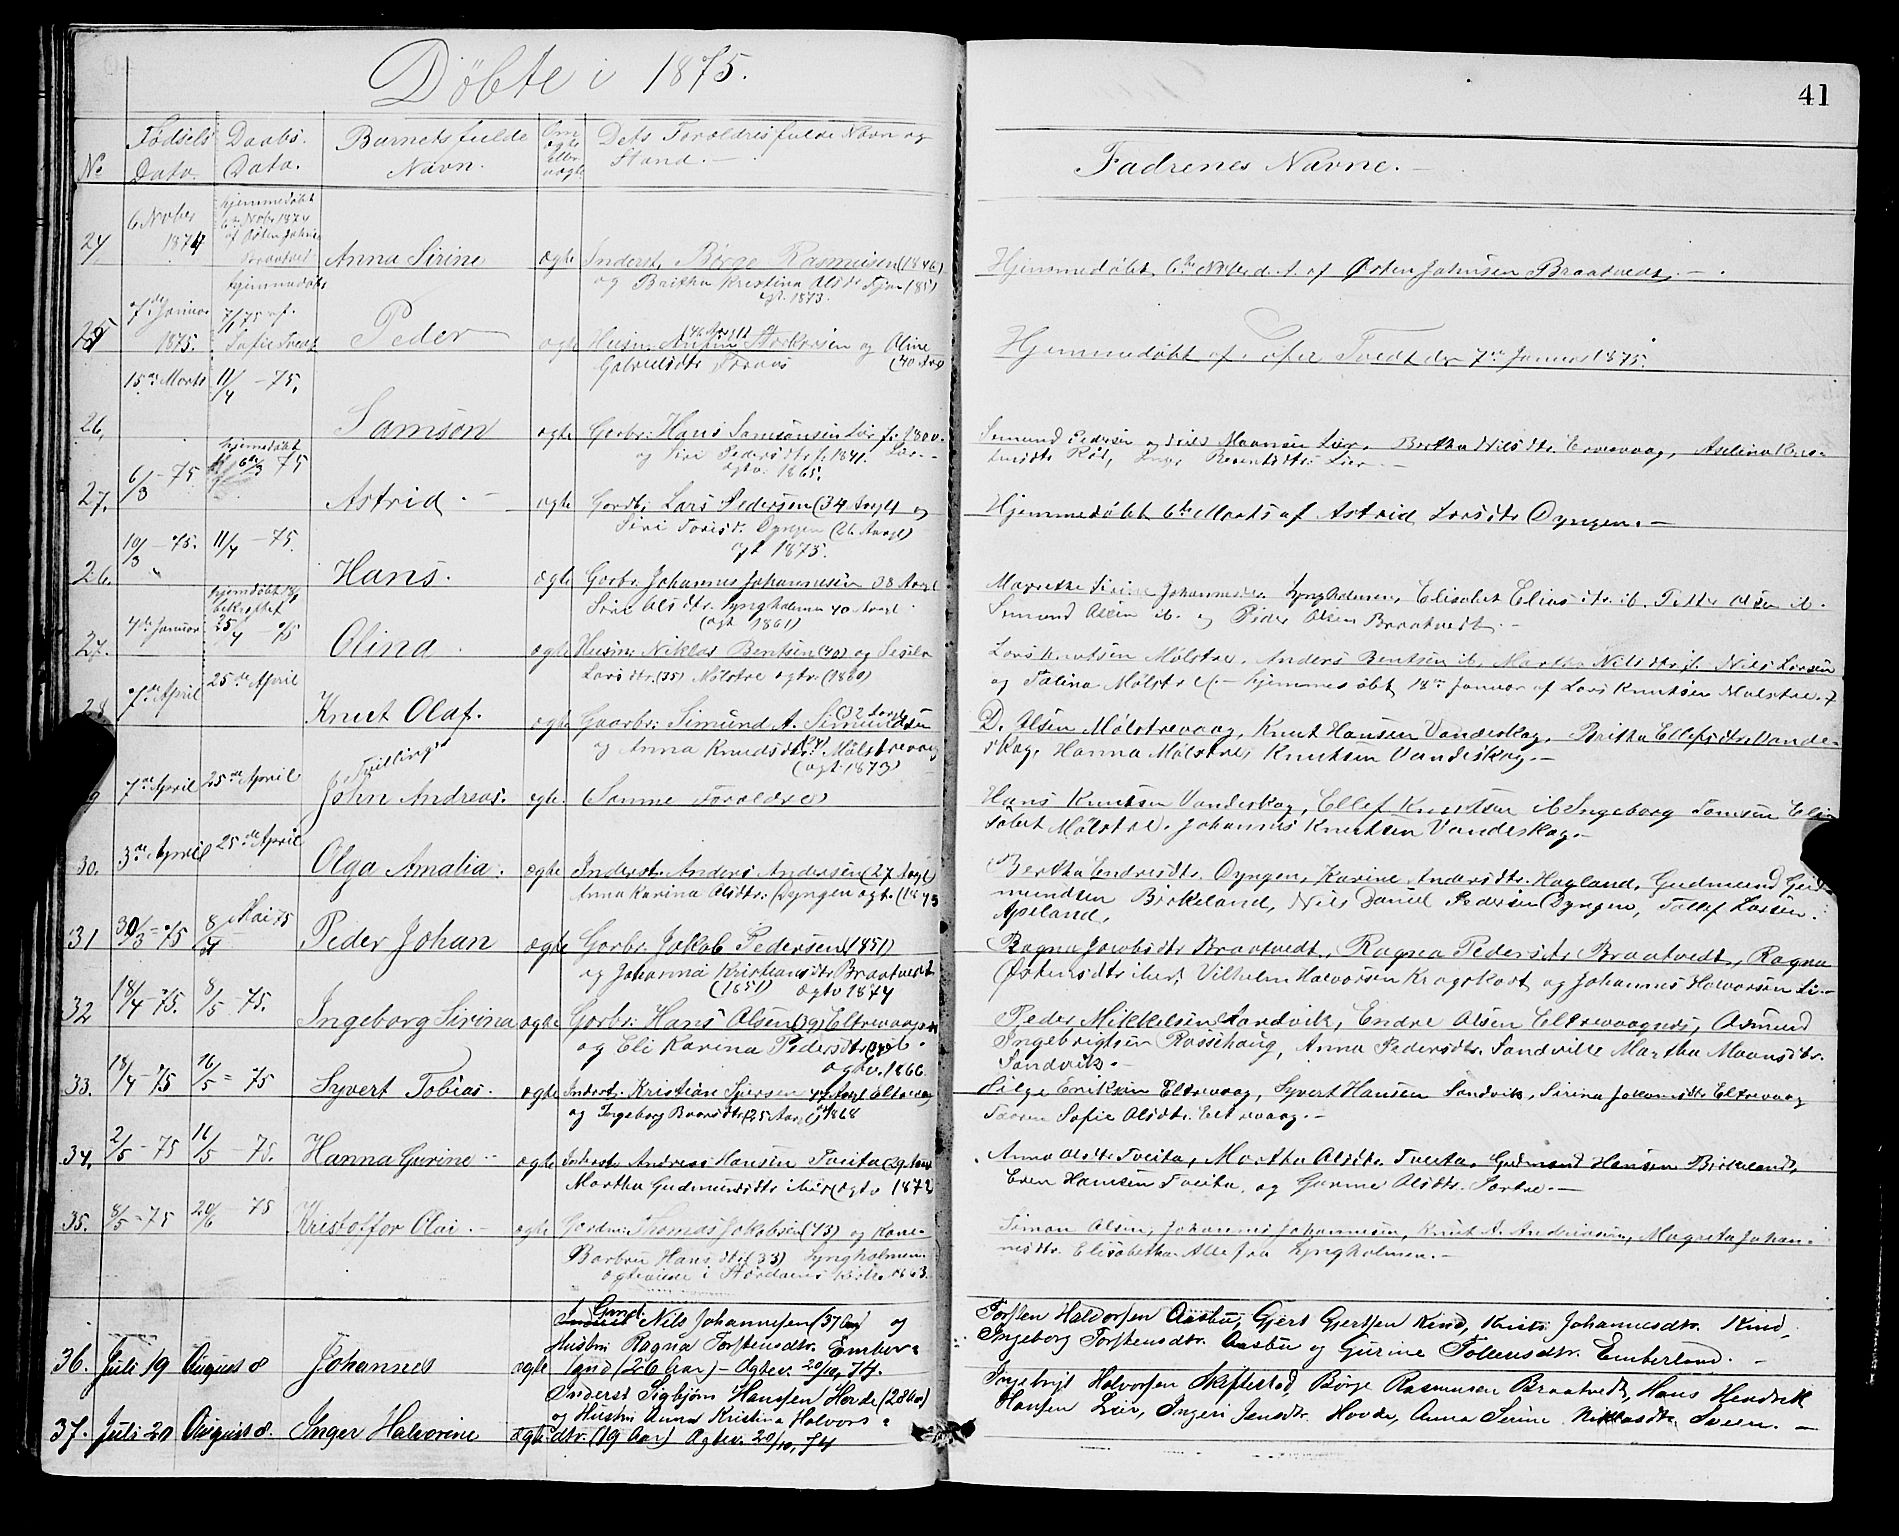 Døbte i 1875.
41
No
Fødsels Dato.
Daabs Dato.
Barnets fulde Navn.
Om ægte eller uægte
Dets Forældres fulde Navn og Stand. —
Fadrenes Navne. —
24
6 Nobr 1874
hjemmedøbt 6te Nobr 1874 af Østen Johns Braatvedt
Anna Sirine
ægte
Inderst Børge Rasmusen (1846)
og Britha Kristina Olsdtr 1851
ægt. 1873.
Hjemmedøbt 6te Nobr af Østen Johnsen Braatvedt. —
25
7de Januar 1875.
hjemmedøbt 7/1 75 af Sofie Tvedt
Peder
ægte
Husm: og Oline
Gabrielsdtr (40 Aar)
Hjemmedøbt af Sofie Tvedt den 7de Januar 1875.
26.
15de Marts
11/4 — 75.
Samson
ægte
Gorbr: Hans Samsonsen Lier f:
og Siri Pedersdtr f: 1841. Lier. —
ægtv. 1865.
Simund Pedersen og Nils Maansen Lier, Bertha Nilsdtr. Ervevaag, Aselina Knu-
dsdtr Røt, Inger Berentsdtr: Lier. —
27.
6/3 — 75
hjemmedøbt 6te/3 75
Astrid. —
ægte
Gordb: Lars Pedersen (34 Aargl) og
Siri Dyngen (26 Aargl)
ægt 1873.
Hjemmedøbt 6te Marts af Astrid Larsdtr Dyngen. —
26.
10/3 — 75.
11/4 — 75.
Hans.
ægte
Gorbr. Johannes Johannesen 38 Aargl
Siri Olsdtr. Lyngholmen 40 Aargl.
(ægt 1861)
Marethe Sirine Johannesdtr Lyngholmen, Elisabet Eliasdtr. ib. Petter Olsen ib.
Simund Olsen ib. og Peder Olsen Braatvedt. —
27.
4de Januar
hjemdøbt 18/1 bekræftet 25/4 — 75
Olina.
ægte
Husm: Niklas Bentsen (40) og Sesele
Larsdtr. (35) Mølstre ægtv. (1860)
Lars Knutsen Mølstre. Anders Bentsen ib. Martha Nilsdtr ib. Nils Larsen
og Talina Mølstre (— hjemmedøbt 18de Januar af Lars Knutsen Mølstre.)
28
7de April
25de April
Knut Olaf.
ægte
Gaarbr: Simund A. Simundsen (32 Aargl)
og Anna Knudsdtr. Mølstrevaag
(ægt. 1873)
D. Olsen Mølstrevaag, Knut Hansen Vandeskog, Britha Ellefsdtr. Vande-
skog, Hanna Mølstre, Knutsen Vandeskog. —
9
7de April
25de April
Tvilling
John Andreas.
ægte.
(Samme Forældre)
Hans Knutsen Vandeskog, Ellef Knutsen ib Ingeborg Tomsen Eli-
sabet Mølstre. Johannes Knutsen Vandeskog. —
30.
3de April
25de April
Olga Amalia.
ægte
Inderst. Anders Andersen (27 Aargl)
Anna Karina Olsdtr. Dyngen ægt. (1873
Bertha Endresdtr. Dyngen, Karine Andersdtr. Hagland, Gudmund Gud-
mundsen Birkeland, Nils Daniel Pedersen Dyngen, Tollef Larsen
Apeland.
31
30/3 — 75
8 Mai 75
Peder Johan
ægte
Gorbr: Jakob Pedersen (1851)
og Johanna Kristiansdtr Braatvedt
(1851) ægtv 1874
Ragna Jacobsdtr Braatvedt, Ragna Pedersdtr Braatvedt, Ragna
Østensdtr ibid, Vilhelm Halvorsen Kragskort og Johannes Halvorsen Li. —
32
18/4 75.
8/5 75.
Ingeborg Sirina
ægte
Gorbr: Hans Olsen (39) Eltrevaag
og Eli Karina Pedersdtr
ægtv. 1866.
Peder Mikkelsen Sandvik, Endre Olsen Eltrevaagnes, Asmund
Ingebrigtsen Røssehaug, Anna Pedersdtr. Sandvik Martha Maansdtr.
Sandvik. —
33.
18/4 — 75
16/5 = 75
Syvert Tobias.
ægte
Inderst. Kristian Sjursen 47 Aargl Eltrevaag
og Ingeborg Baarsdtr. (25 Aargl) 1868
Helge Eriksen Eltrevaag, Syvert Hansen Sandvik, Sirina Johannesdtr Eltrevaag
Taaren Sofie Olsdtr. Eltrevaag. —
34.
2/5 — 75
16/5 — 75.
Hanna Gurine
ægte
Inderst Andreas Hansen Tveita (29 Aar)
Martha Gudmunsdtr ibid. ægtv 1872
Anna Olsdtr Tveita, Martha Olsdtr. Tveita, Gudmund Hansen Birkeland,
Even Hansen Tveita, og Gurine Olsdtr. Sortre. —
35.
8/5 — 75
20/6 — 75
Kristoffer Olai. —
ægte
Gordm: Thomas Jakobsen (43) og Kone
Barbru Hansdtr (33) Lyngholmen
ægteviede i Stordøens Kirke 1863.
Simon Olsen, Johannes Johannesen, Knut A. Andreassen, Magreta Johan-
nesdtr. Elisabetha Alle fra Lyngholmen. —
36.
Juli 19
August 8
Johannes
ægte
Grmd. Nils Johannesen (37 Aar) og
Hustru Ragna Torstensdtr. Ember-
land (26 Aar) — Ægtev. 20/10, 74.
Torsten Haldorsen Aasbu, Gjert Gjertsen Kind, Kristi Johannesdtr. Kind,
Ingeborg Torstensdtr. Aasbu og Gurine Tollevsdtr. Emberland. —
37.
Juli 20
August 8.
Inger Halvorine
ægte
Inderst Sigbjørn Hansen Hovde (28 Aar)
og Hustru Anna Kristina Halvors-
dtr. (19 Aar) Ægtev. 20/10, 74
Ingebrigt Halvorsen Skiftestad, Børje Rasmusen Braatvedt, Hans Hendrik
Hansen Lier, Ingeri Jensdtr. Hovde, Anna Serine Niklasdtr. Sveen. —